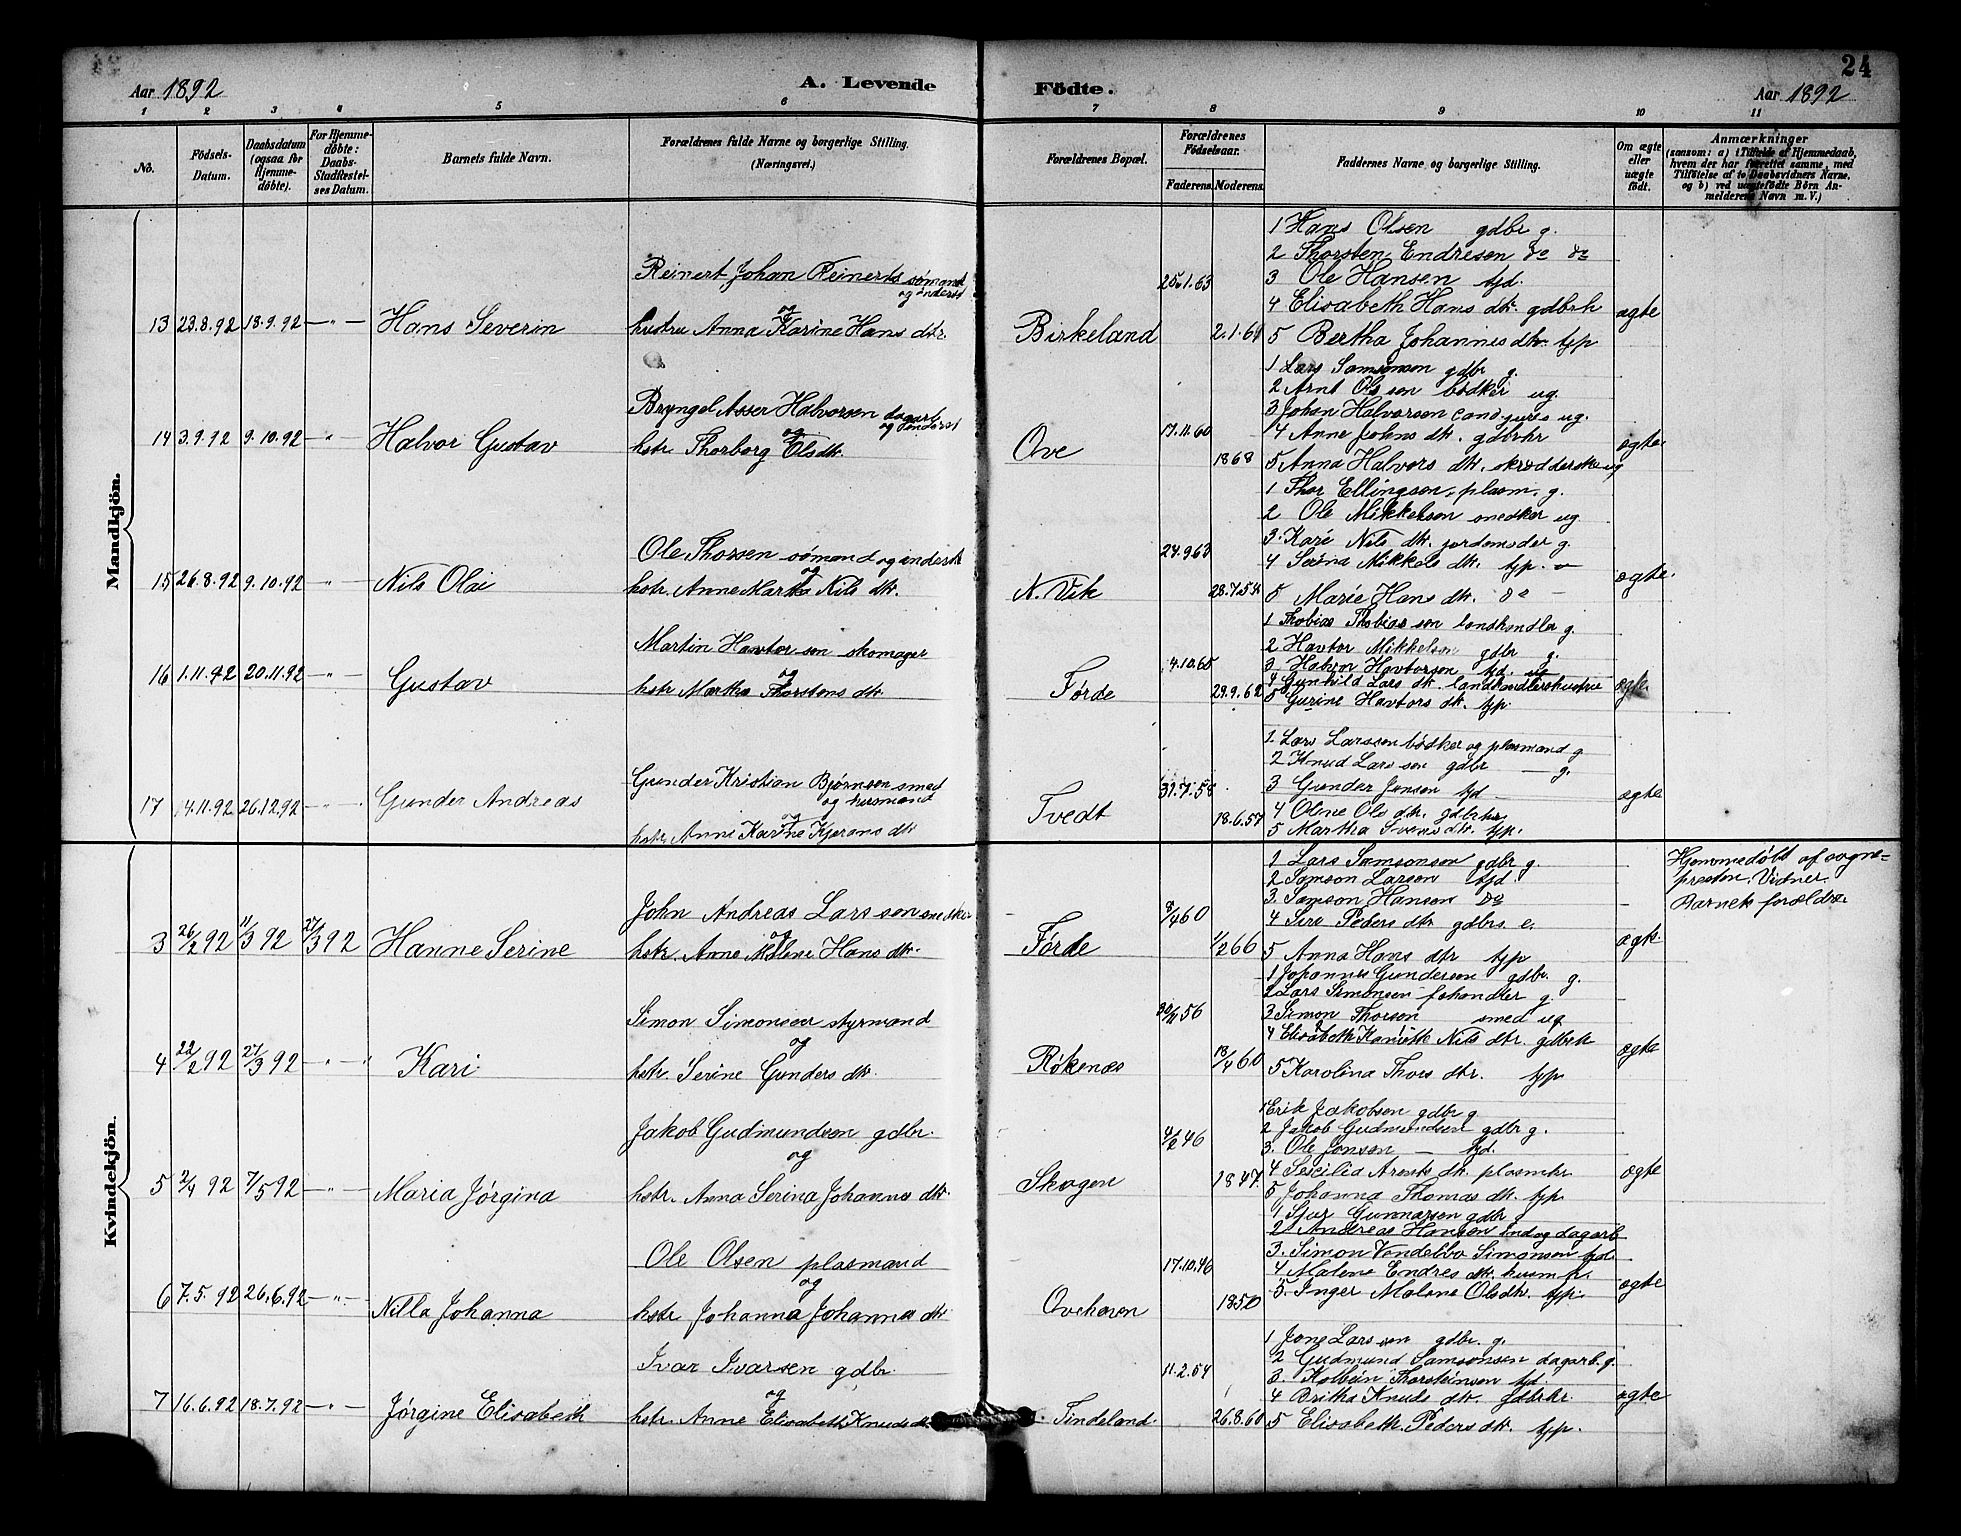 24
Aar 1892
A. Levende
Fødte.
Aar 1892
1 2 3 4 5 6 7 8 9 10 11
No.
Fødsels-Datum.
Daabsdatum (ogsaa for Hjemme-døbte).
For Hjemme-døbte: Daabs-Stadfæstel-ses Datum.
Barnets fulde Navn.
Forældrenes fulde Navne og borgerlige Stilling. (Næringsvei.)
Forældrenes Bopæl.
Forældrenes Fødselsaar.
Faderens. Moderens.
Faddernes Navne og borgerlige Stilling.
Om ægte eller uægte født.
Anmærkninger
(saasom: a) i Tilfælde af Hjemmedaab, hvem der har forrettet samme, med Tilføielse af to Daabsvidners Navne, og b) ved uægtefødte Børn An-melderens Navn m. V.)
Mandkjön.
13 23.8.92 18.9.92 — " — Hans Severin
Reinert Johan Reinerts sømand og inderst
og
hustru Anna Karine Hans dtr.
Birkeland
25.1.63
2.1.64
1 Hans Olsen gdbr g.
2 Thorsten Endresen do do
3 Ole Hansen tjd.
4 Elisabeth Hans dtr. gdbrh
5 Bertha Johannis dtr. tjp
ægte
14 3.9.92 9.10.92 — " — Halvor Gustav
Bryngel Asser Halvorsen dagarb. og inderst
og
hstr. Thorborg Ols dtr.
Ove
17.11.60
1868
1 Lars Samsonsen gdbr g.
2 Arnt Olsson bødker ug.
3 Johan Halvorsen cand. juris ug.
4 Anne Johns dtr. gdbrhr
5 Anna Halvors dtr. skrædderske ug
ægte
15 26.8.92 9.10.92 — " — Nils Olai
Ole Thorsen sømand og inderst
og
hstr. Anne Martha Nils dtr.
N. Vik
24.9.63
28.7.54
1 Thor Ellingsen plasm. g.
2 Ole Mikkelsen snedker ug
3. Kari Nils dtr. jordemoder g.
4 Serina Mikkels dtr. tjp. —
5 Marie Hans dtr. do —
ægte.
16 1.11.92 20.11.92 — " — Gustav
Martin Havtorsen skomager
og
hstr. Martha Thorstens dtr.
Førde
4.10.65
29.9.62
1 Thobias Thobiassen landhandler g.
2 Havtor Mikkelsen gdbr g.
3. Halvor Havtorsen tjd. ug
4 Gunhild Lars dtr. landhandlershustru
5 Gurine Havtors dtr. tjp.
ægte.
17 14.11.92 26.12.92 — " — Gunder Andreas
Gunder Kristian Bjørnsen smed og husmand
og
hstr. Anne Karine Kjerans dtr
Tvedt
31.7.58
18.6.57
1. Lars Larssen bødker og plasmand g
2 Knud Larssen gdbr — g.
3 Gunder Jensen tjd —
4 Oline Ols dtr. gdbrhr.
5 Martha Svens dtr. tjp.
ægte
Kvindekjön.
3 26/2 92 11/3 92 27/3 92 Hanne Serine
John Andreas Larssen snedker
og
hstr. Anne Malene Hans dtr.
Førde
8/4 60
1/2 66
1 Lars Samsonsen gdbr g.
2 Samson Larsen tjd.
3. Samson Hansen do
4 Sire Peders dtr gdbrs. e.
5 Anna Hans dtr tjp
ægte
Hjemmedøbt af sogne=
præsten. Vidner
Barnets forældre.
4 22/2 92 27/3 92 — " — " Kari
Simon Simonsen styrmand
og
hstr. Serine Gunders dtr.
Røkenæs
30/11 56
18/4 60
1 Johannes Gundersen gdbr. g.
2 Lars Simonsen fehandler g.
3 Simon Thorsen smed ug
4 Elisabeth Nils dtr. gdbrh
5 Karolina Thors dtr. tjp
ægte
5 2/4 92 7/5 92 — " — Maria Jørgina
Jakob Gudmundsen gdbr.
og
hstr. Anna Serina Johannes dtr.
Skogen
4/2 46
1847.
1 Erik Jakobsen gdbr g
2 Jakob Gudmundsen gdbr g.
3. Ole Jonsen — tjd.
4 Sescilia Arents dtr. plasmhr
5 Johanna Thomas dtr. tjp.
ægte
6 7.5.92 26.6.92 — " — Nilla Johanna
Ole Olsen plasmand
og
hstr. Johanna Johanna dtr.
Ovehaven
17.10.46
1850
1 Sjur Gunnarsen gdbr g
2. Andreas Hansen ind. og dagarb
3. Simon Vandebbo Simonsen tjd.
4 Malene Endres dtr. husm.h.
5. Inger Malene Ols dtr. tjp.
ægte
7 16.6.92 18.7.92 — " — Jørgine Elisabeth
Ivar Ivarsen gdbr
og
hstr. Anne Elisabeth Knuds dtr.
Tindeland.
11.2.54
26.8.60
1 Jone Larssen gdbr. g.
2 Gudmund Samsonsen dagarb. g.
3. Kolbein Thorsteinsen tjd.
4 Britha Knuds dtr. gdbrhr.
5 Elisabeth Peders dtr. tjp.
ægte